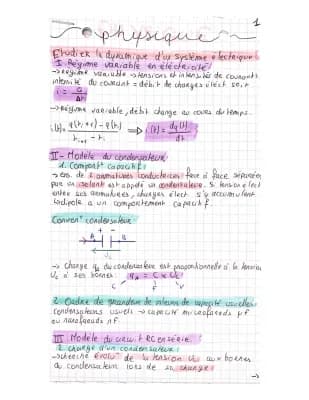 1
physique
Etudier la dynamique d'un système électrique
I. Régime variable en électricité
→ régime variable → tensions et intensités de courants
intensité du courant = débit de charges élect soit
i = Q/Δt
→ régime variable, débit change au cours du temps.
⇒ i(t) = dq(t)/dt
II - Modèle du condensateur
1. Comport^t capacitif
→ ens. de 2 armatures conductrices face à face séparées
par un isolant est appelé un condensateur. Si tension élect
entre ses armatures, charges élect. s'y accumulent
dipole a un comportement capacitif.
Convent° condensateur
A + - B
Uc
→ charge qA du condensateur est proportionnelle à la tension
Uc à ses bornes: qA = C × Uc
C F V
2. Ordre de grandeur de valeurs de capacité usuelles
condensateurs usuels → capacité microfarads μF
ou nanofarads nF.
III. Modèle du circuit RC en série.
1. charge d'un condensateur
→ cherche évolu° de la tension Uc aux bornes
du condensateur lors de sa charge
→